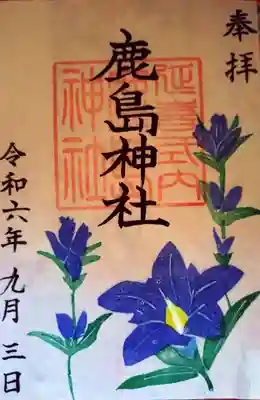 奉拝
延喜式内
鹿島神社
令和六年九月三日